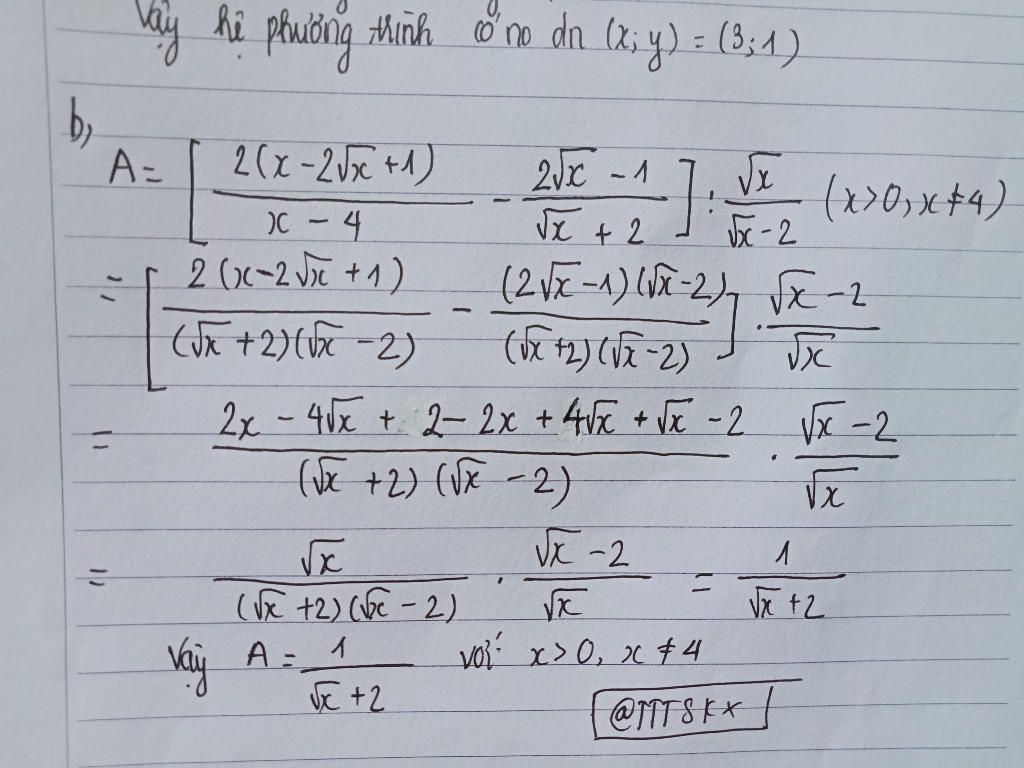 Vậy hệ phương trình có no dn (x; y) = (3; 1)
b,
A = [ 2(x - 2√x + 1) / x - 4 - 2√x - 1 / √x + 2 ] : √x / √x - 2 (x > 0, x ≠ 4)
= [ 2(x - 2√x + 1) / (√x + 2)(√x - 2) - (2√x - 1)(√x - 2) / (√x + 2)(√x - 2) ] . √x - 2 / √x
= 2x - 4√x + 2 - 2x + 4√x + √x - 2 / (√x + 2)(√x - 2) . √x - 2 / √x
= √x / (√x + 2)(√x - 2) . √x - 2 / √x = 1 / √x + 2
Vậy A = 1 / √x + 2 với x > 0, x ≠ 4